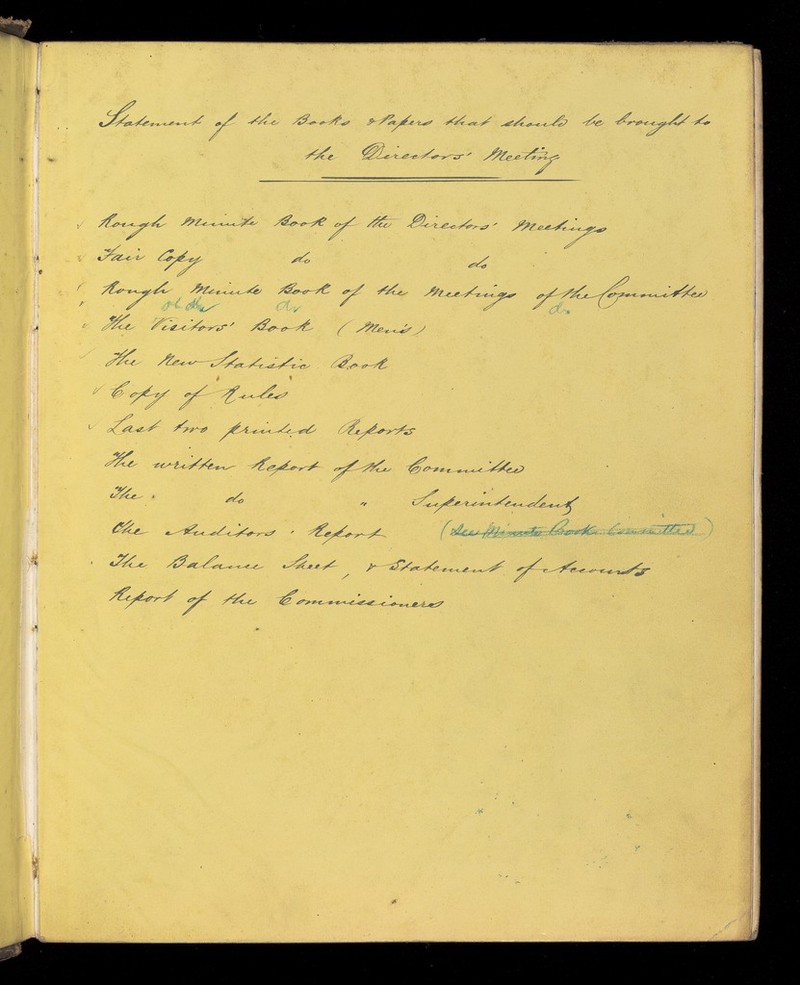 Statement of the Books & Papers that should be brought to
the Directors' Meeting
Rough Minute Book of the Directors' Meetings
Fair Copy do do
Rough Minute Book of the Meetings of the Committee
do do
The Visitors' Book (Men's)
The New Statistic Book
Copy of Rules
Last two printed Reports
The written Report of the Committee
The do " Superintendent
The Auditors' Report (See Minute Book Committee)
The Balance Sheet, & Statement of Accounts
Report of the Commissioners